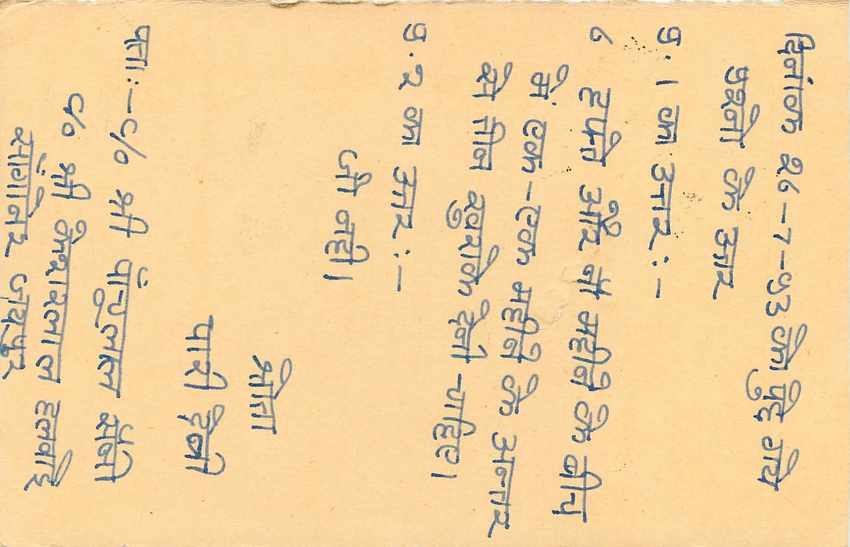 दिनांक २६-७-५३ को पुछे गये
प्रश्नो के उत्तर
प्र.१ का उत्तर:-
६ हफ्ते और नौ महीने के बीच
में एक-एक महीने के अन्तर
से तीन खुराके देनी चाहिए।
प्र.२ का उत्तर:-
जी नही।
श्रोता
पारी देवी
पता:-C/o श्री पाँचुलाल सैनी
C/o श्री केशरलाल हलवाई
सांगानेर जयपुर